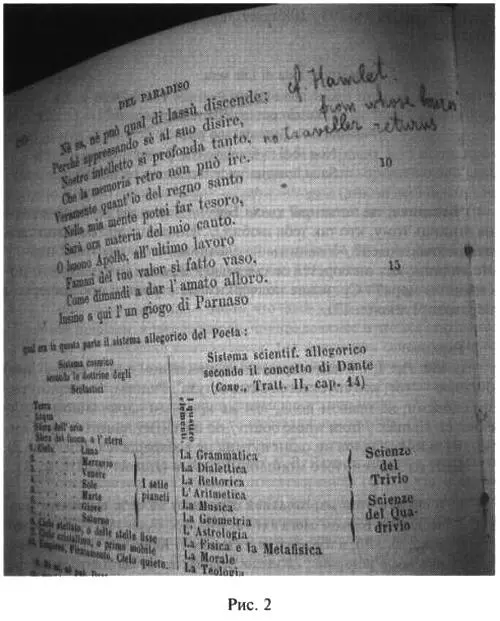 DEL PARADISO
cf. Hamlet.
from whose bourn
no traveller returns
Nè sa, nè può qual di lassù discende;
Perchè appressando sè al suo disire,
Nostro intelletto si profonda tanto,
Che la memoria retro non può ire.
10
Veramente quant'io del regno santo
Nella mia mente potei far tesoro,
Sarà ora materia del mio canto.
O buono Apollo, all'ultimo lavoro
Fammi del tuo valor sì fatto vaso,
Come dimandi a dar l'amato alloro.
15
Insino a qui l'un giogo di Parnaso
qual era in questa parte il sistema allegorico del Poeta:
Sistema cosmico
secondo le dottrine degli
Scolastici
Sistema scientif. allegorico
secondo il concetto di Dante
(Conv., Tratt. II, cap. 14)
Terra
Acqua
Sfera dell'aria
Sfera del fuoco, o l'etere
I quattro
elementi.
1. Cielo. Luna
Mercurio
Venere
Sole
Marte
Giove
Saturno
I sette
pianeti
8. Cielo stellato, o delle stelle fisse
9. Cielo cristallino, o primo mobile
10. Empireo, Firmamento, Cielo quieto.
La Grammatica
La Dialettica
La Rettorica
L'Aritmetica
La Musica
La Geometria
L'Astrologia
La Fisica e la Metafisica
La Morale
La Teologia
Scienze
del
Trivio
Scienze
del Qua-
drivio
Рис. 2